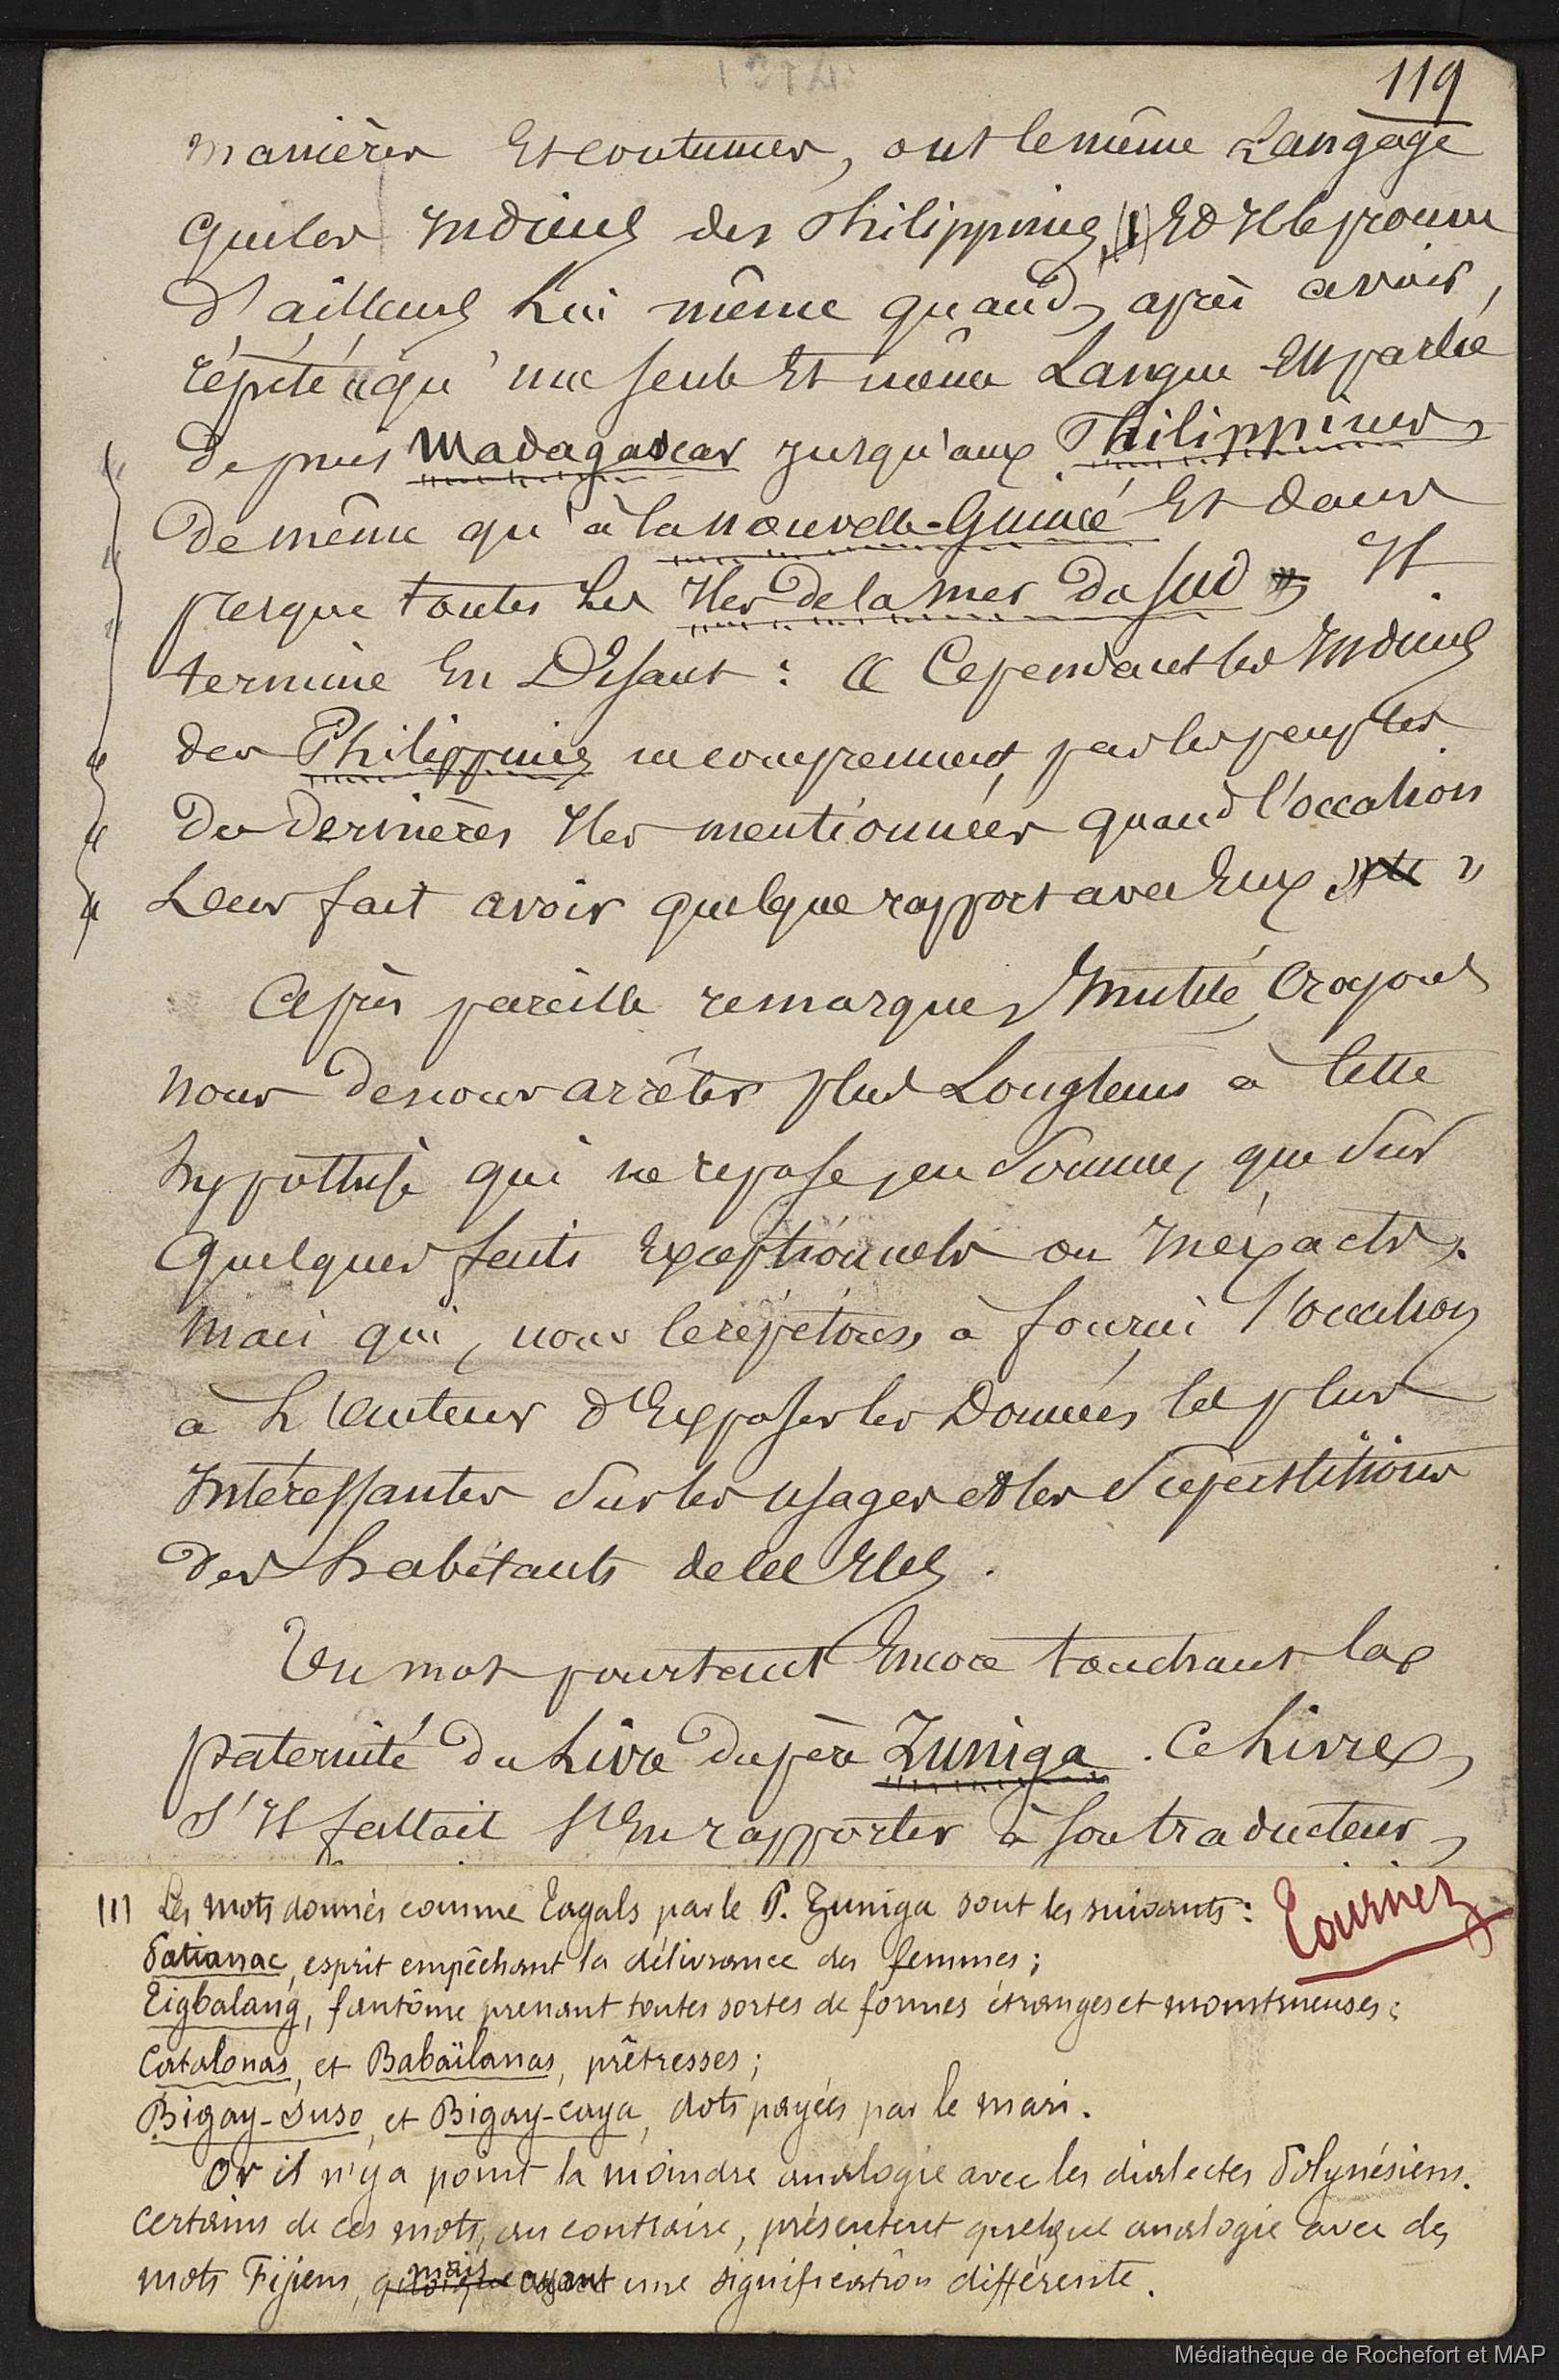 119
manières et coutumes, ont le même Langage
que les Indiens des Philippines (1) Et Il le prouve
d'ailleurs Lui même quand, après avoir,
répété « qu'une seule Et même Langue Est parlée
depuis Madagascar jusqu'aux Philippines,
de même qu'à la nouvelle-Guinée Et dans
presque toutes Les Iles de la mer du sud » Il
termine En Disant : « Cependant les Indiens
des Philippines ne comprennent pas les peuples
des dernières Iles mentionnées quand l'occasion
Leur fait avoir quelque rapport avec Eux »
Après pareille remarque, Inutile, Croyons
nous de nous arrêter plus Longtems à cette
hypothèse qui ne repose, en somme, que sur
quelques faits Exceptionnels ou Inéxacts,
mais qui, nous le répétons, à fourni l'occasion
à L'auteur d'Exposer les Données les plus
Intéressantes sur les usages et les superstitions
des habitants de ces Iles.
Un mot pourtant Encore touchant la
paternité du Livre du père Zuniga. Ce Livre,
s'Il fallait s'En rapporter à son traducteur,
(1) Les mots donnés comme Tagals par le P. Zuniga sont les suivants :
Tournez
Patianac, esprit empêchant la délivrance des femmes ;
Tigbalang, fantôme prenant toutes sortes de formes étranges et monstrueuses ;
Catalonas, et Babaïlanas, prêtresses ;
Bigay-Suso, et Bigay-caya, dots payées par le mari.
Or il n'y a point la moindre analogie avec les dialectes Polynésiens.
Certains de ces mots, au contraire, présentent quelque analogie avec des
mots Fijiens, mais ayant une signification différente.
Médiathèque de Rochefort et MAP